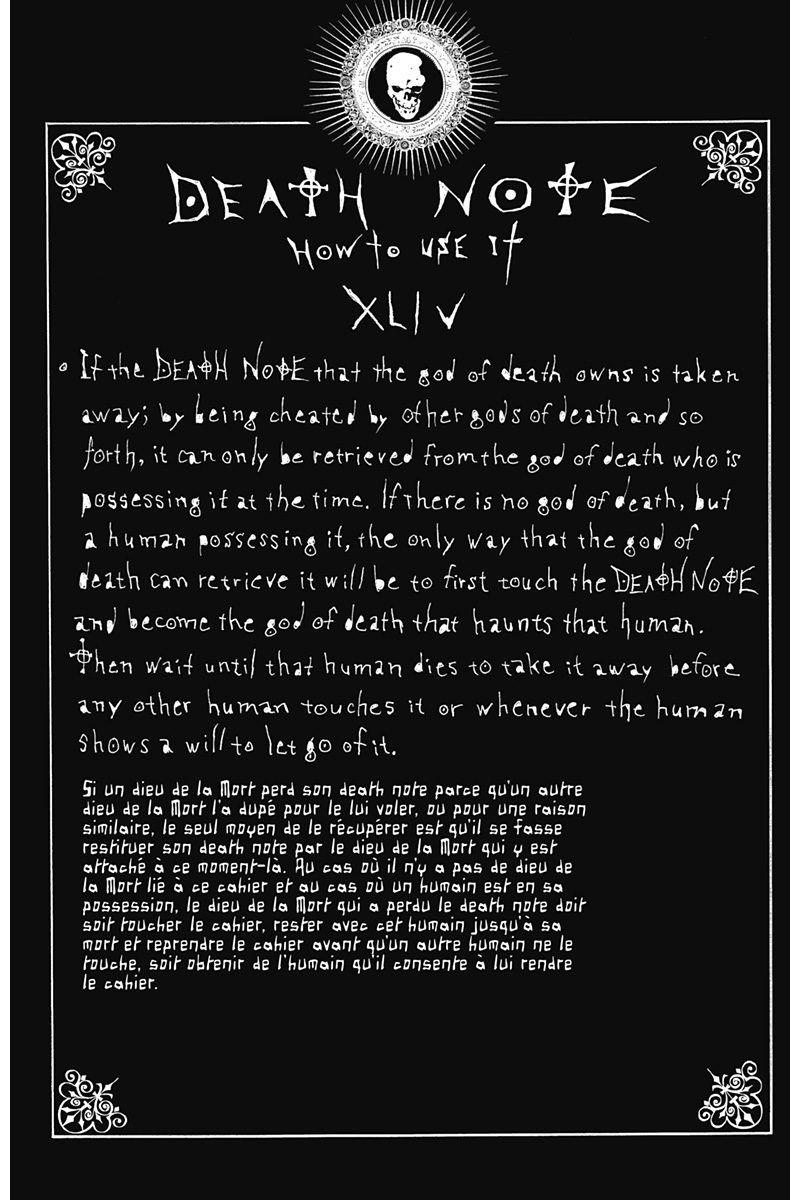 DEATH NOTE
HOW TO USE IT
XLIV
• If the DEATH NOTE that the god of death owns is taken
away; by being cheated by other gods of death and so
forth, it can only be retrieved from the god of death who is
possessing it at the time. If there is no god of death, but
a human possessing it, the only way that the god of
death can retrieve it will be to first touch the DEATH NOTE
and become the god of death that haunts that human.
Then wait until that human dies to take it away before
any other human touches it or whenever the human
shows a will to let go of it.
Si un dieu de la Mort perd son death note parce qu'un autre
dieu de la Mort l'a dupé pour le lui voler, ou pour une raison
similaire, le seul moyen de le récupérer est qu'il se fasse
restituer son death note par le dieu de la Mort qui y est
attaché à ce moment-là. Au cas où il n'y a pas de dieu de
la Mort lié à ce cahier et au cas où un humain est en sa
possession, le dieu de la Mort qui a perdu le death note doit
soit toucher le cahier, rester avec cet humain jusqu'à sa
mort et reprendre le cahier avant qu'un autre humain ne le
touche, soit obtenir de l'humain qu'il consente à lui rendre
le cahier.